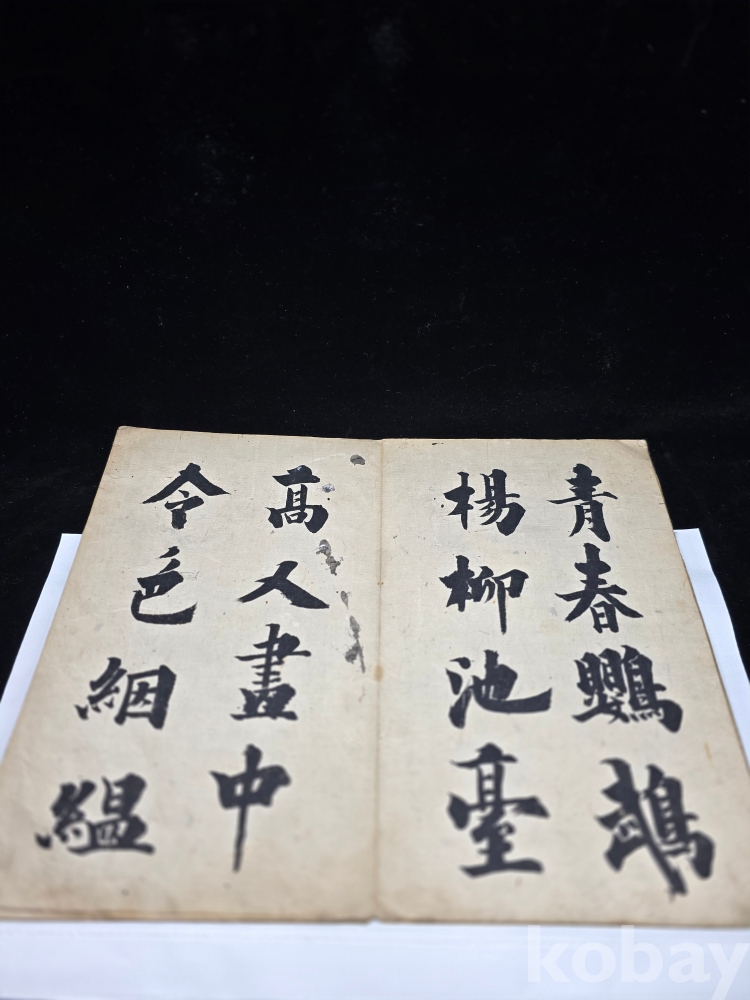 青春鸚鵡
楊柳池臺
高人畫中
令色絪縕
kobay